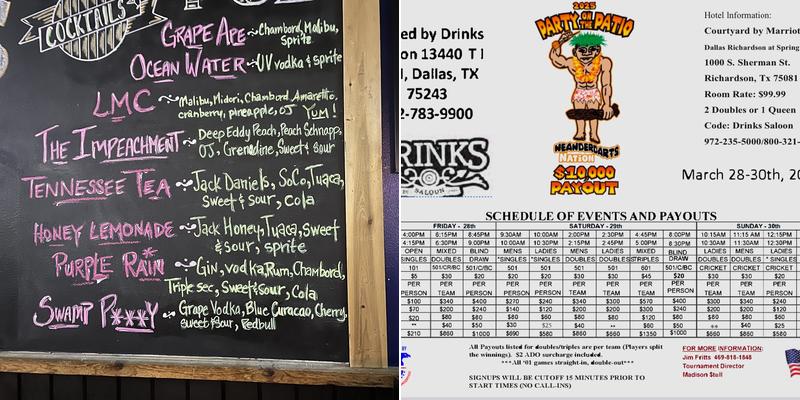 COCKTAILS
GRAPE APE ~ Chambord, Malibu,
Sprite
OCEAN WATER ~ UV vodka & sprite
LMC ~ Malibu, Midori, Chambord, Amaretto,
cranberry, pineapple, OJ YUM!
THE IMPEACHMENT ~ Deep Eddy Peach, Peach Schnapp,
OJ, Grenadine, Sweet & sour
TENNESSEE TEA ~ Jack Daniels, SoCo, Tuaca,
Sweet & sour, Cola
HONEY LEMONADE ~ Jack Honey, Tuaca, Sweet
& sour, sprite
PURPLE RAIN ~ Gin, vodka, Rum, Chambord,
Triple sec, Sweet & sour, Cola
SWAMP P***Y ~ Grape Vodka, Blue Curacao, Cherry,
sweet & sour, Redbull
ed by Drinks
on 13440 T I
I, Dallas, TX
75243
2-783-9900
RINKS
SALOON
2025
PARTY ON THE PATIO
NEANDERDARTS
NATION
$10,000
PAYOUT
Hotel Information:
Courtyard by Marriot
Dallas Richardson at Spring
1000 S. Sherman St.
Richardson, Tx 75081
Room Rate: $99.99
2 Doubles or 1 Queen
Code: Drinks Saloon
972-235-5000/800-321-
March 28-30th, 20
SCHEDULE OF EVENTS AND PAYOUTS
FRIDAY - 28th SATURDAY - 29th SUNDAY - 30th
4:00PM 6:15PM 8:45PM 9:30AM 10:00AM 2:00PM 2:30PM 4:45PM 8:00PM 10:15AM 11:15 AM 12:15PM
4:15PM 6:30PM 9:00PM 10:00AM 10:30PM 2:15PM 2:45PM 5:00PM 8:30PM 10:30AM 11:30AM 12:30PM
OPEN MIXED BLIND MENS LADIES MENS LADIES MIXED BLIND MENS LADIES MENS
SINGLES DOUBLES DRAW *SINGLES *SINGLES DOUBLES DOUBLES TRIPLES DRAW DOUBLES DOUBLES * SINGLES
101 501/C/BC 501/C/BC 501 501 501 501 601 501/C/BC CRICKET CRICKET CRICKET
$5 $30 $20 $20 $20 $30 $30 $45 $20 $30 $30 $20
PER PER PER PER PER PER PER PER PER PER PER PER
PERSON TEAM PERSON PERSON PERSON TEAM TEAM TEAM PERSON TEAM TEAM PERSON
$100 $340 $400 $270 $240 $340 $300 $570 $400 $340 $300
$70 $200 $240 $140 $120 $200 $200 $340 $240 $200 $200
$20 $80 $80 $60 $60 $80 $80 $120 $80 $80 $80
** $40 $50 $30 $25 $40 ** $60 $50 ** $40 $25
$210 $860 $1000 $690 $580 $860 $660 $1350 $1000 $860 $580
All Payouts listed for doubles/triples are per team (Players split
the winnings). $2 ADO surcharge included.
***All '01 games straight-in, double-out***
SIGNUPS WILL BE CUTOFF 15 MINUTES PRIOR TO
START TIMES (NO CALL-INS)
FOR MORE INFORMATION:
Jim Fritts 469-818-1848
Tournament Director
Madison Stull